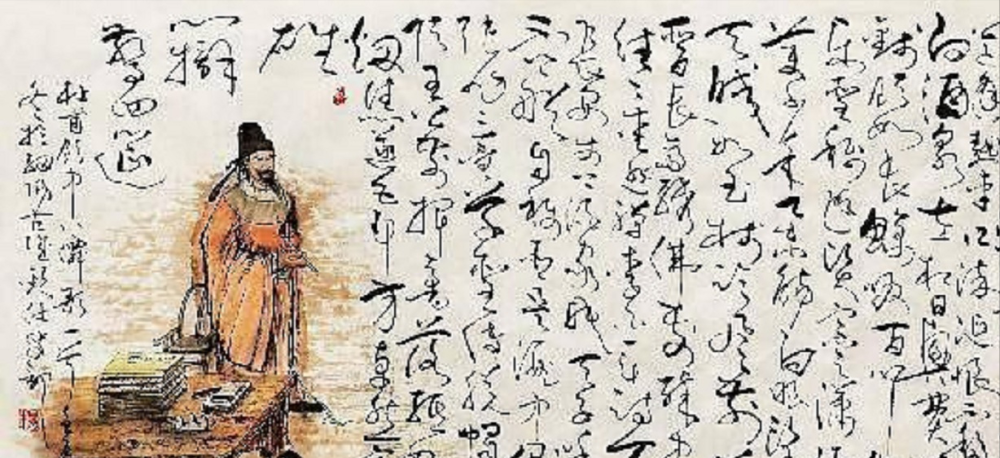 道逢麯車口流涎恨不移
向酒泉左相日興費
錢飲如長鯨吸百川
樂聖稱避賢宗之瀟
美少年舉觴白眼望
天皎如玉樹臨風前
晉長齋繡佛前醉中
往往愛逃禪李白一斗詩百
長安市上酒家眠天子呼
上船自稱臣是酒中仙
張旭三杯草聖傳脫帽
頂王公前揮毫落紙如
煙焦遂五斗方卓然
雄
辯
驚四筵
杜甫飲中八仙歌一首
冬於